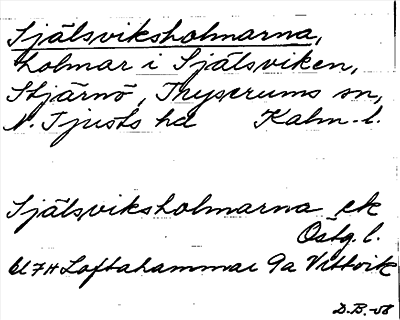 Själsviksholmarna,
holmar i Själsviken,
Stjärnö, Tryserums sn,
N. Tjusts hd Kalm. l.
Själsviksholmarna ek
Östg. l.
Loftahammar 9a Vittvik
D.B.-58